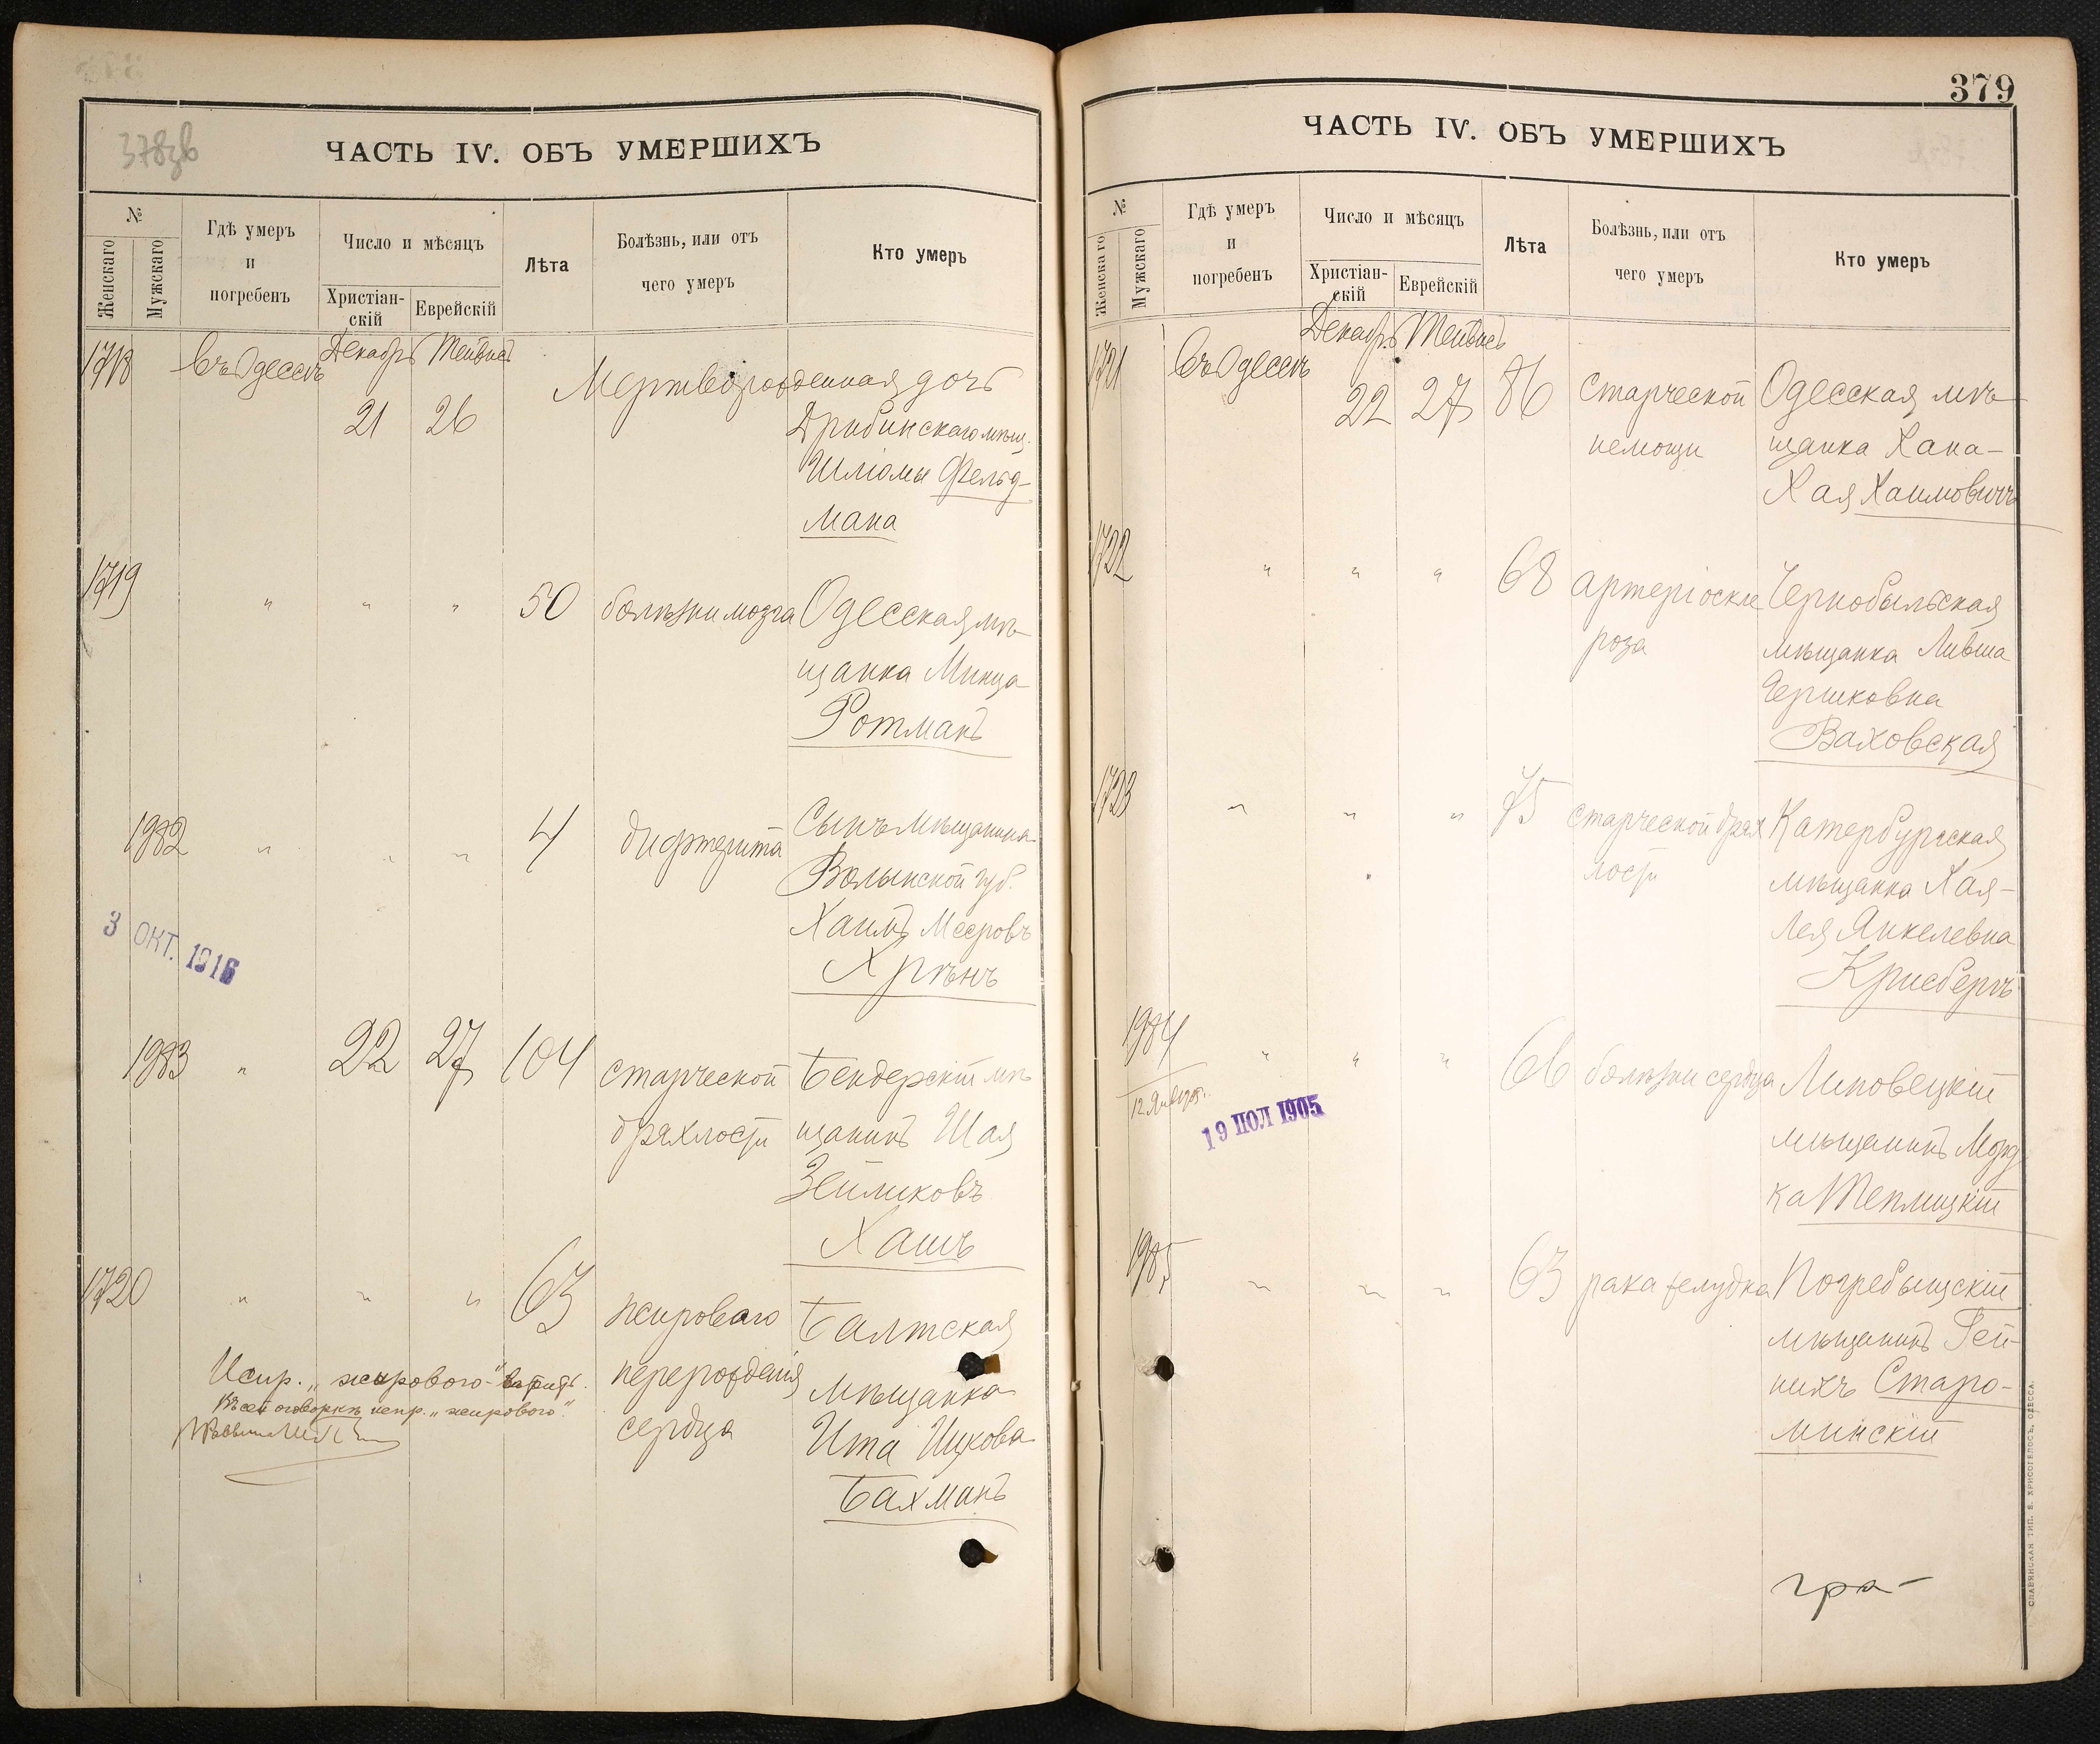 378зв
ЧАСТЬ IV. ОБЪ УМЕРШИХЪ
№
Женскаго
Мужскаго
Гдѣ умеръ
и
погребенъ
Число и мѣсяцъ
Христіан-
скій
Еврейскій
Лѣта
Болѣзнь, или отъ
чего умеръ
Кто умеръ
1718 Въ Одессѣ Декабрь Тейвисъ
21 26
Мертворожденная дочь
Дрибинскаго мѣщ.
Шліомы Фельд-
мана
1719 " " " 50 болѣзни мозга Одесская мѣ-
щанка Минца
Ротманъ
1982 " " " 4 дифтерита Сынъ мѣщанина
Волынской губ.
Хаимъ Мееровъ
Хрѣнъ
3 ОКТ. 1916
1983 " 22 27 104 старческой Бендерскій мѣ-
дряхлости щанинъ Шая
Зейликовъ
Хаимъ
1720 " " " 63 жироваго Балтская
перерожденія мѣщанка
сердца Ита Ицкова
Бахманъ
Испр. "жирового" вѣрить.
Въ сей оговоркѣ испр. "жирового".
379
ЧАСТЬ IV. ОБЪ УМЕРШИХЪ
№
Женскаго
Мужскаго
Гдѣ умеръ
и
погребенъ
Число и мѣсяцъ
Христіан-
скій
Еврейскій
Лѣта
Болѣзнь, или отъ
чего умеръ
Кто умеръ
1721 Въ Одессѣ Декабрь Тейвисъ
22 27 86 старческой Одесская мѣ-
немощи щанка Хана-
Хая Хаимовичъ
1722 " " " 68 артеріоскле Чернобыльская
роза мѣщанка Ливша
Гершковна
Ваховская
1723 " " " 75 старческой дрях Катербургская
лости мѣщанка Хая-
Лея Янкелевна
Крисбергъ
1984 " " " 66 болѣзни сердца Липовецкій
12 Январ.
19 ПОЛ 1905
мѣщанинъ Морд
ка Теплицкій
1985 " " " 63 рака желудка Погребыщскій
мѣщанинъ Гей-
нихъ Старо-
минскій
гра-
СЛАВЯНСКАЯ ТИП. Е. ХРИСОГЕЛОСЪ, ОДЕССА.